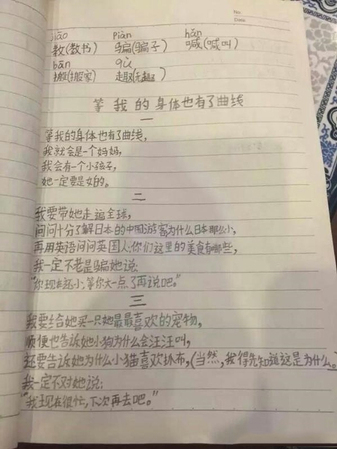 No:
Date:
jiāo piàn hǎn
教(教书) 骗(骗子) 喊(喊叫)
bān qù
搬(搬家) 趣(无趣)
等我的身体也有了曲线
一
等我的身体也有了曲线,
我就会是一个妈妈,
我会有一个小孩子,
她一定要是女的。
二
我要带她走遍全球,
问问十分了解日本的中国游客为什么日本那么小,
再用英语问问英国人:你们这里的美食有哪些,
我一定不老是骗她说:
"你现在还小,等你大一点了再说吧。"
三
我要给她买一只她最最喜欢的宠物,
顺便也告诉她小狗为什么会汪汪叫,
还要告诉她为什么小猫喜欢抓布,(当然,我得先知道这是为什么。
我一定不对她说:
"我现在很忙,下次再去吧。"